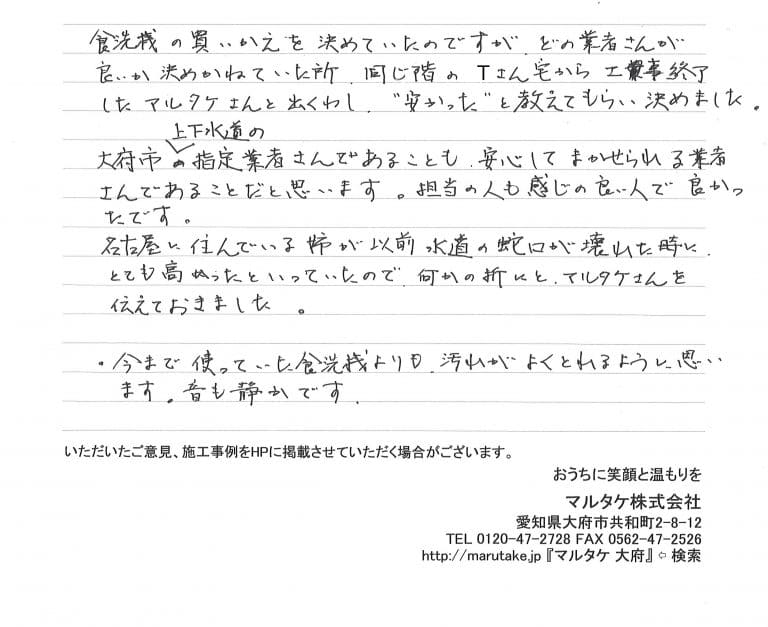 食洗機の買いかえを決めていたのですが、どの業者さんが
良いか決めかねていた所、同じ階のTさん宅から工事終了
したマルタケさんと出くわし、"安かった"と教えてもらい決めました。
上下水道の
大府市の指定業者さんであることも、安心してまかせられる業者
さんであることだと思います。担当の人も感じの良い人で良かっ
たです。
名古屋に住んでいる姉が以前水道の蛇口が壊れた時に、
とても高かったといっていたので、何かの折にと、マルタケさんを
伝えておきました。
・今まで使っていた食洗機よりも、汚れがよくとれるように思い
ます。音も静かです。
いただいたご意見、施工事例をHPに掲載させていただく場合がございます。
おうちに笑顔と温もりを
マルタケ株式会社
愛知県大府市共和町2-8-12
TEL 0120-47-2728 FAX 0562-47-2526
http://marutake.jp『マルタケ 大府』⇦検索